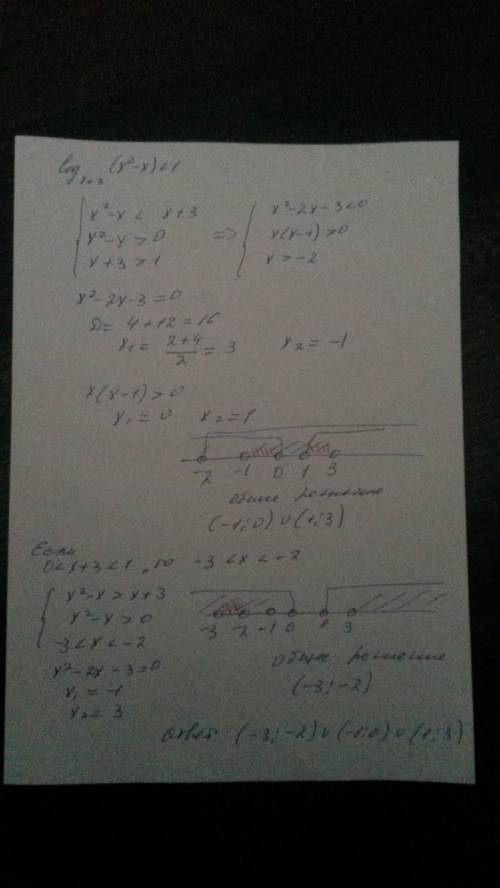 log x+3 (x²-x)<1
{ x²-x< x+3 => { x²-2x-3<0
x²-x>0 x(x-1)>0
x+3>1 x>-2
x²-2x-3=0
D= 4+12=16
x₁= (2+4)/2 = 3 x₂= -1
x(x-1)>0
x₁=0 x₂=1
-2 -1 0 1 3
общее решение
(-1;0)∪(1;3)
Если
0<x+3<1, то -3<x<-2
{ x²-x>x+3
x²-x>0
-3<x<-2
-3 -2 -1 0 1 3
x²-2x-3=0
x₁=-1
x₂=3
общее решение
(-3;-2)
ответ (-3;-2)∪(-1;0)∪(1;3)